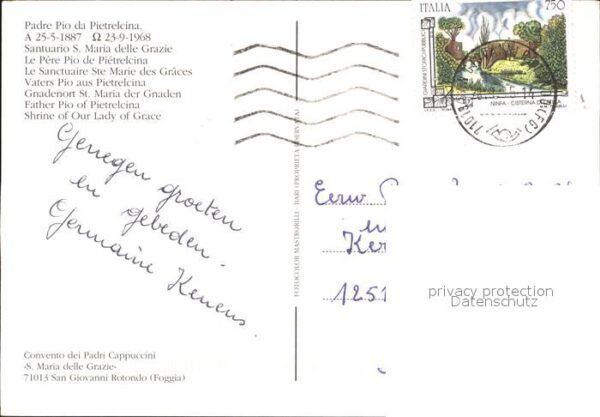 Padre Pio da Pietrelcina.
A 25-5-1887 Ω 23-9-1968
Santuario S. Maria delle Grazie
Le Père Pio de Piétrelcina
Le Sanctuaire Ste Marie des Grâces
Vaters Pio aus Pietrelcina
Gnadenort St. Maria der Gnaden
Father Pio of Pietrelcina
Shrine of Our Lady of Grace
Genegen groeten
en gebeden.
Germaine
Convento dei Padri Cappuccini
-S. Maria delle Grazie-
71013 San Giovanni Rotondo (Foggia)
FOTOCOLOR MASTROBILLI BARI (PROPRIETÀ RISERVATA)
ITALIA 750
GIARDINI STORICI PUBBLICI
NINFA - CISTERNA DI
Eerw
en
Ker
1251
privacy protection
Datenschutz